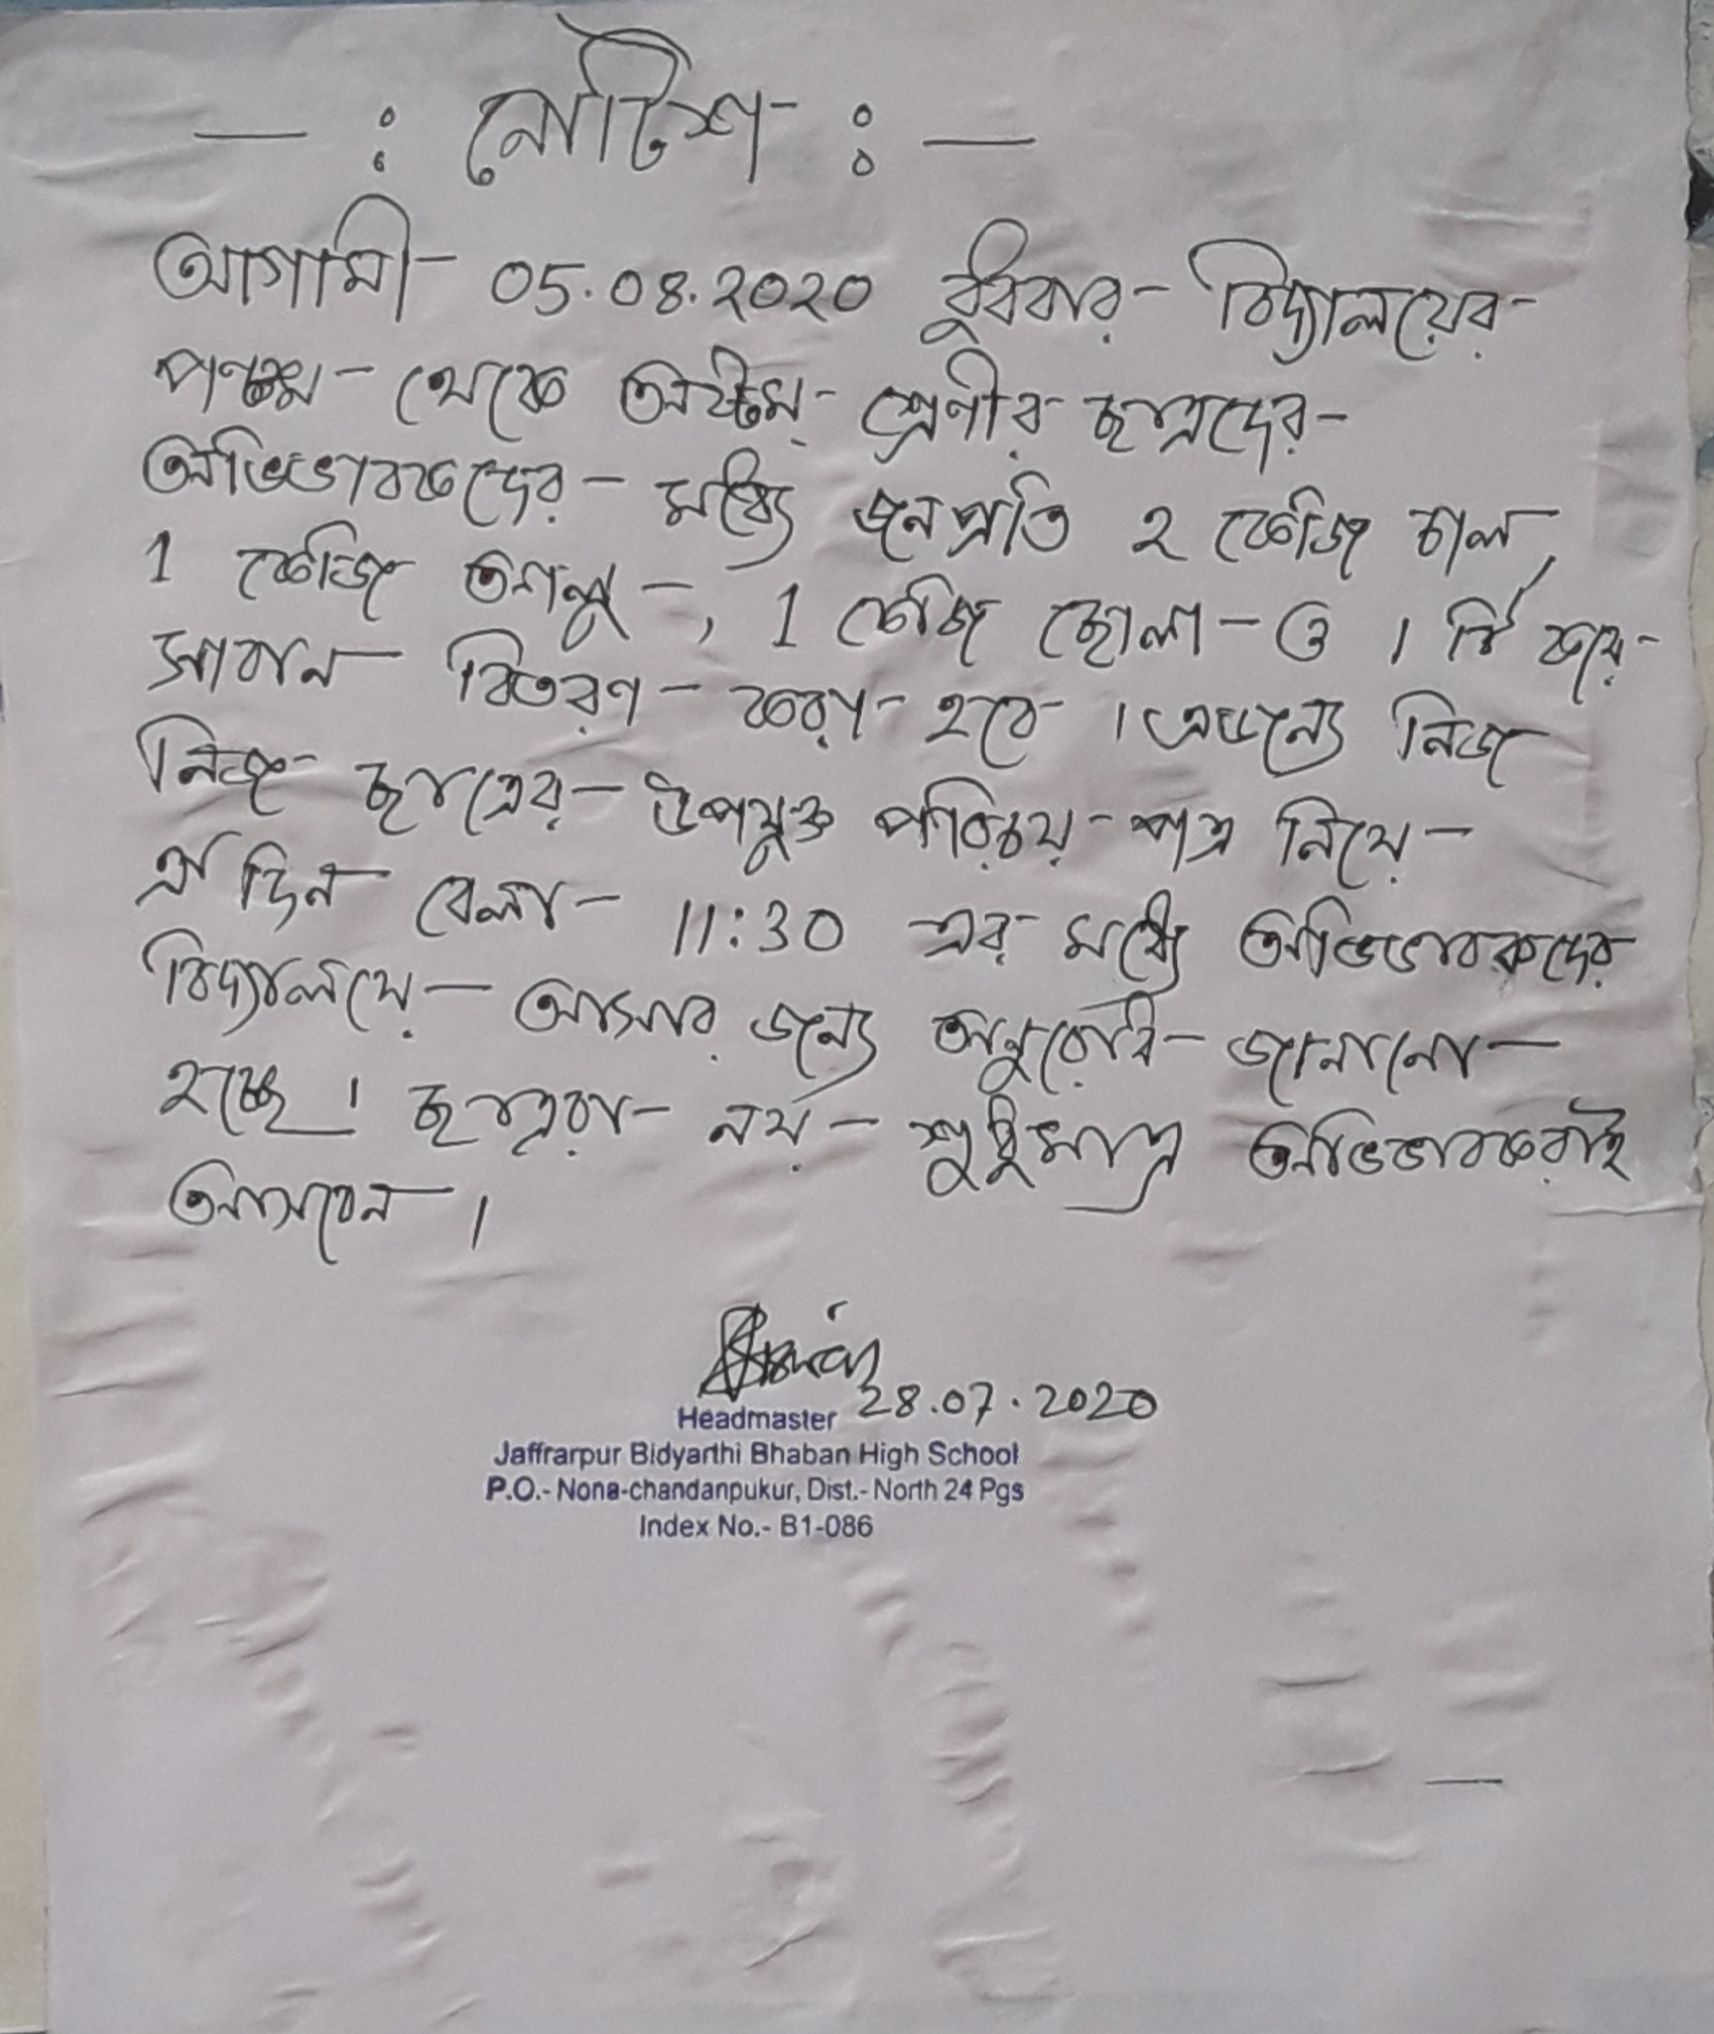 — : নোটিশ : —
আগামী 05.08.2020 বুধবার বিদ্যালয়ের
পঞ্চম থেকে অষ্টম শ্রেণীর ছাত্রদের
অভিভাবকদের মধ্যে জনপ্রতি ২ কেজি চাল,
1 কেজি আলু, 1 কেজি ছোলা ও 1 টি করে
সাবান বিতরণ করা হবে । এজন্যে নিজ
নিজ ছাত্রের উপযুক্ত পরিচয় পত্র নিয়ে
ঐ দিন বেলা 11:30 এর মধ্যে অভিভাবকদের
বিদ্যালয়ে আসার জন্যে অনুরোধ জানানো
হচ্ছে । ছাত্ররা নয় শুধুমাত্র অভিভাবকরাই
আসবেন ।
28.07.2020
Headmaster
Jaffrarpur Bidyarthi Bhaban High School
P.O.- Nona-chandanpukur, Dist.- North 24 Pgs
Index No.- B1-086